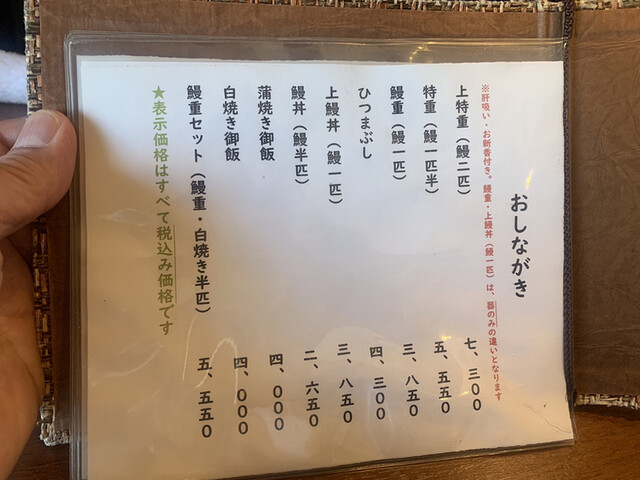 おしながき
※肝吸い・お新香付き。鰻重・上鰻丼(鰻一匹)は、器のみの違いとなります
上特重(鰻二匹) 七、三〇〇
特重(鰻一匹半) 五、五五〇
鰻重(鰻一匹) 三、八五〇
ひつまぶし 四、三〇〇
上鰻丼(鰻一匹) 三、八五〇
鰻丼(鰻半匹) 二、六五〇
蒲焼き御飯 四、〇〇〇
白焼き御飯 四、〇〇〇
鰻重セット(鰻重・白焼き半匹) 五、五五〇
★表示価格はすべて税込み価格です